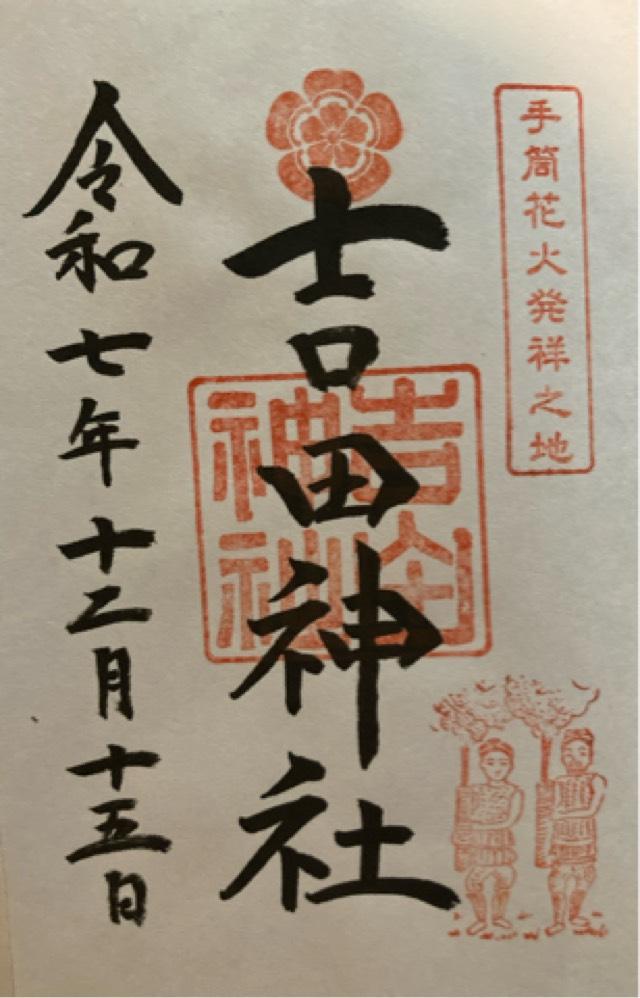 手筒花火発祥之地
吉田神社
令和七年十二月十五日